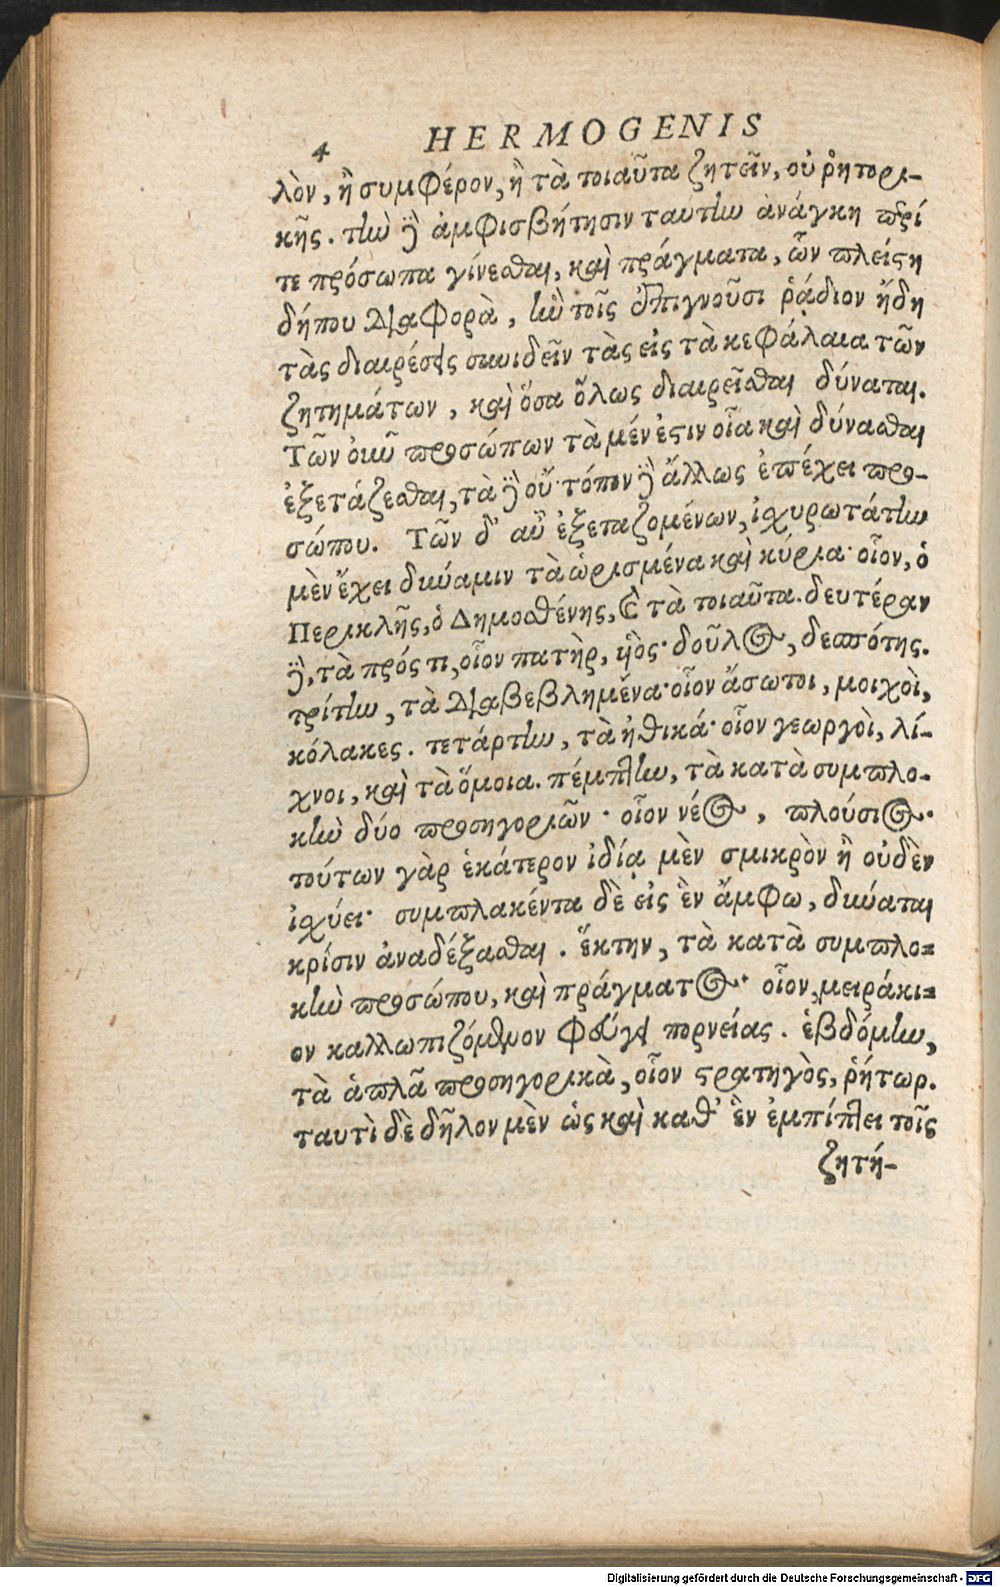 4 HERMOGENIS
λὸν, ἢ συμφέρον, ἢ τὰ τοιαῦτα ζητεῖν, οὐ ῥητορι-
κῆς. τὴν δὲ ἀμφισβήτησιν ταύτην ἀνάγκη περί
τε πρόσωπα γίνεσθαι, καὶ πράγματα, ὧν πλείστη
δήπου διαφορὰ, ἣν τοῖς ἐπιγνοῦσι ῥᾴδιον ἤδη
τὰς διαιρέσεις συνιδεῖν τὰς εἰς τὰ κεφάλαια τῶν
ζητημάτων, καὶ ὅσα ὅλως διαιρεῖσθαι δύναται.
Τῶν οὖν προσώπων τὰ μέν ἐστιν οἷα καὶ δύνασθαι
ἐξετάζεσθαι, τὰ δὲ οὔ· τόπον δὲ ἄλλως ἐπέχει προ-
σώπου. Τῶν δ' αὖ ἐξεταζομένων, ἰσχυρωτάτην
μὲν ἔχει δύναμιν τὰ ὡρισμένα καὶ κύρια· οἷον, ὁ
Περικλῆς, ὁ Δημοσθένης, καὶ τὰ τοιαῦτα. δευτέραν
δὲ, τὰ πρός τι, οἷον πατὴρ, υἱός· δοῦλος, δεσπότης.
τρίτην, τὰ διαβεβλημένα· οἷον ἄσωτοι, μοιχοὶ,
κόλακες. τετάρτην, τὰ ἠθικά· οἷον γεωργοὶ, λί-
χνοι, καὶ τὰ ὅμοια. πέμπτην, τὰ κατὰ συμπλο-
κὴν δύο προσηγοριῶν· οἷον νέος, πλούσιος·
τούτων γὰρ ἑκάτερον ἰδίᾳ μὲν σμικρὸν ἢ οὐδὲν
ἰσχύει· συμπλακέντα δὲ εἰς ἓν ἄμφω, δύναται
κρίσιν ἀναδέξασθαι. ἕκτην, τὰ κατὰ συμπλο-
κὴν προσώπου, καὶ πράγματος· οἷον, μειράκι-
ον καλλωπιζόμενον φεύγει πορνείας. ἑβδόμην,
τὰ ἁπλᾶ προσηγορικὰ, οἷον στρατηγὸς, ῥήτωρ.
ταυτὶ δὲ δῆλον μὲν ὡς καὶ καθ' ἓν ἐμπίπτει τοῖς
ζητή-
Digitalisierung gefördert durch die Deutsche Forschungsgemeinschaft - DFG